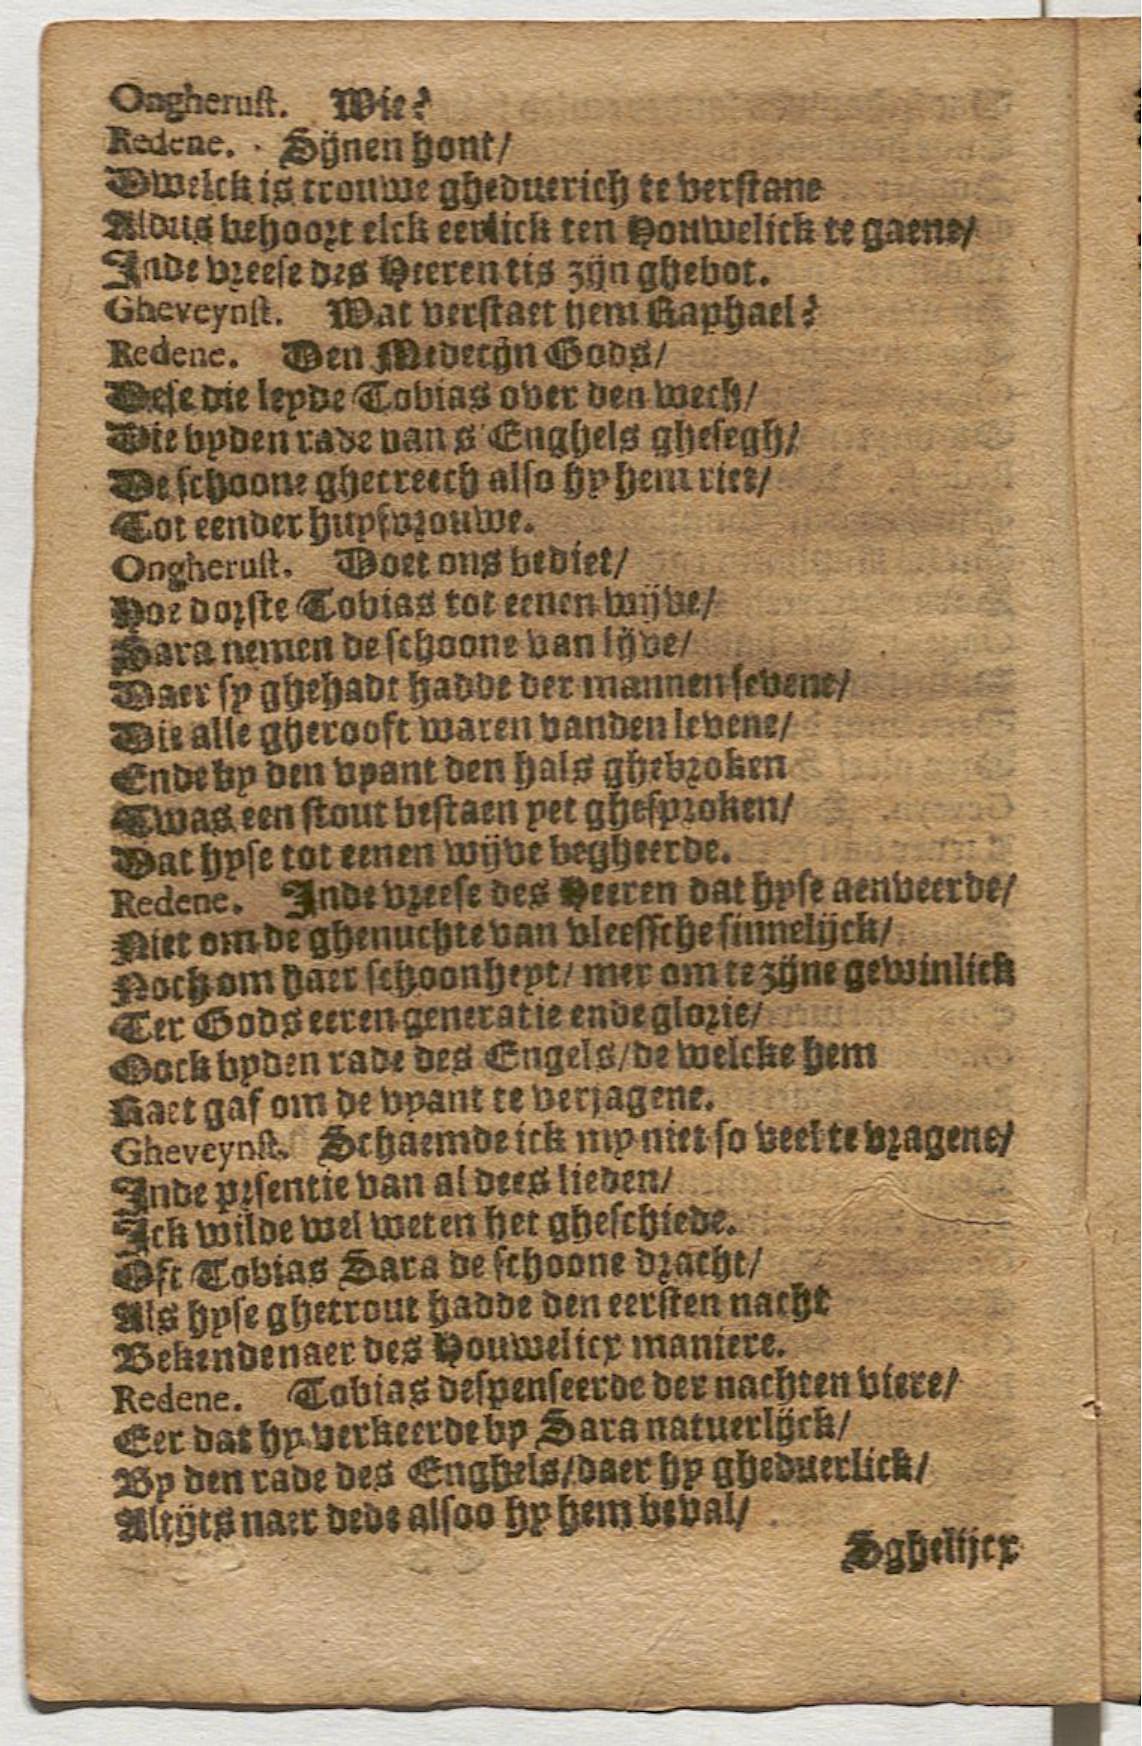 Ongherust. Wie?
Redene. Sijnen hont/
Dwelck is trouwe gheduerich te verstane
Aldus behoort elck eerlick ten Houwelick te gaene/
Inde vreese des Heeren tis zijn ghebot.
Gheveynst. Wat verstaet hem Raphael?
Redene. Den Medecijn Gods/
Dese die leyde Tobias over den wech/
Die byden rade van s'Enghels ghesegh/
De schoone ghecreech also hy hem riet/
Tot eender huysvrouwe.
Ongherust. Doet ons bediet/
Hoe dorste Tobias tot eenen wijve/
Sara nemen de schoone van lijve/
Daer sy ghehadt hadde der mannen sevene/
Die alle gherooft waren vanden levene/
Ende by den vyant den hals ghebroken
Twas een stout bestaen yet ghesproken/
Dat hyse tot eenen wijve begheerde.
Redene. Inde vreese des Heeren dat hyse aenveerde/
Niet om de ghenuchte van vleessche sinnelijck/
Noch om haer schoonheyt/ mer om te zijne gewinlick
Ter Gods eeren generatie ende glorie/
Oock byden rade des Engels/de welcke hem
Raet gaf om de vyant te verjagene.
Gheveynst. Schaemde ick my niet so veel te vragene/
Inde presentie van al dees lieden/
Ick wilde wel weten het gheschiede.
Oft Tobias Sara de schoone dracht/
Als hyse ghetrout hadde den eersten nacht
Bekende naer des Houwelicx maniere.
Redene. Tobias despenseerde der nachten viere/
Eer dat hy verkeerde by Sara natuerlijck/
By den rade des Enghels/daer hy gheduerlick/
Altijts naer dede alsoo hy hem beval/
Sghelijcx